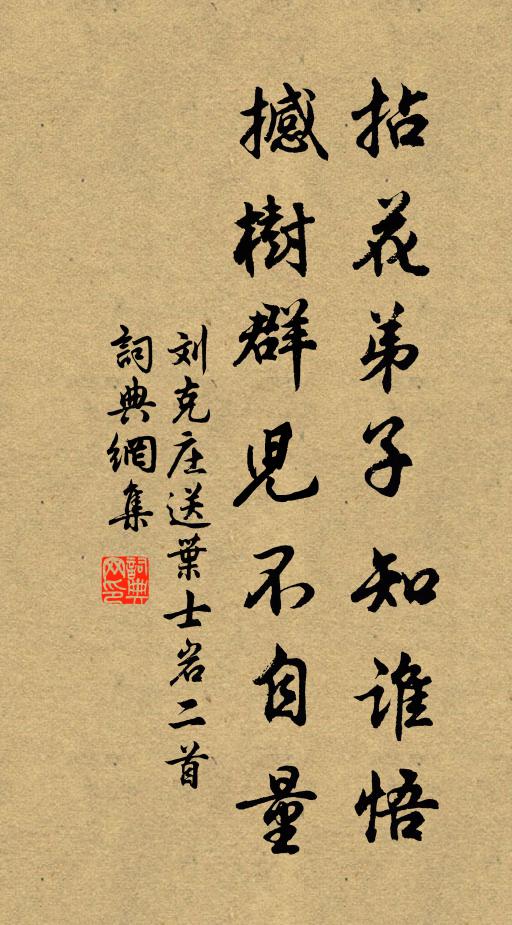 拈花弟子知誰悟
撼樹群児不自量
刘克庄送葉士岩二首
詞典網集
詞典網印